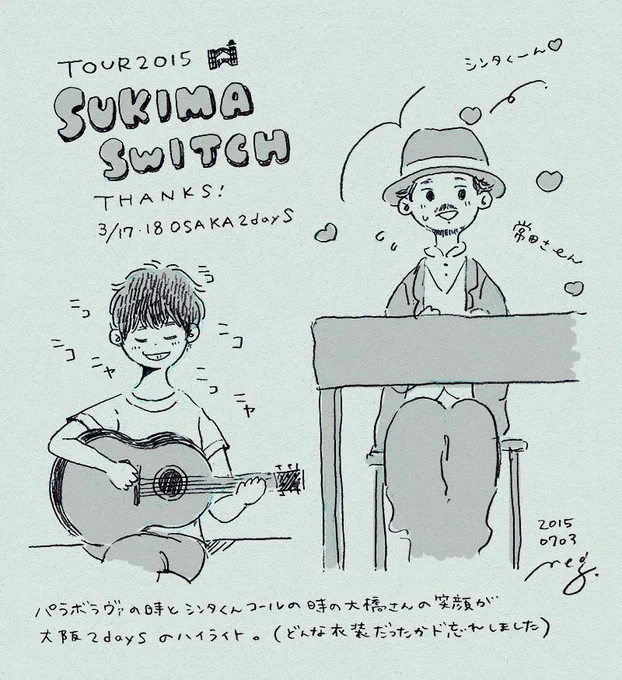 TOUR2015
SUKIMA
SWITCH
THANKS!
3/17・18 OSAKA 2days
シンタくーん♡
常田さぁん
ニコ
ニコ
ニヤ
ニコ
ニコ
ニヤ
2015
0703
neg.
パラボラヴァの時とシンタくんコールの時の大橋さんの笑顔が
大阪2daysのハイライト。(どんな衣装だったかド忘れしました)